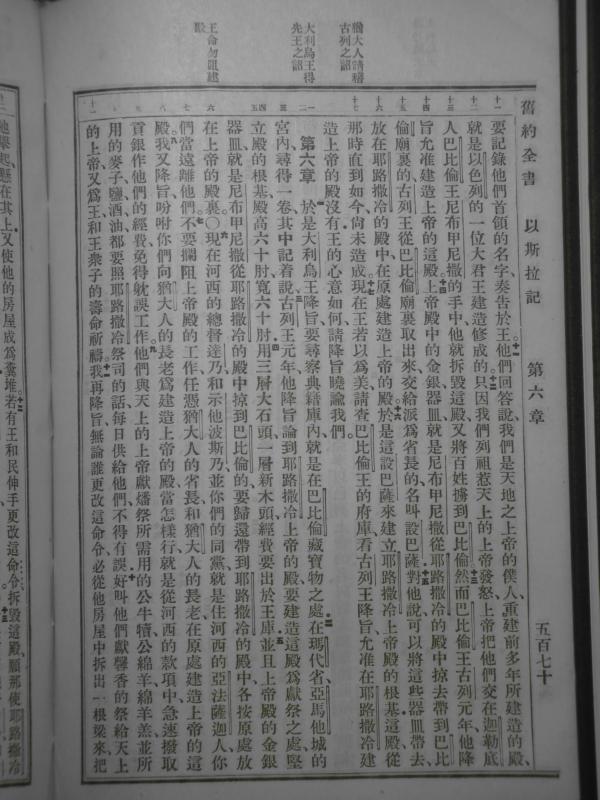 舊約全書 以斯拉記 第六章 五百七十
猶大人請稽
古列之詔
大利烏王得
先王之詔
王命勿阻建
殿
要記錄他們首領的名字奏告於王他們回答說我們是天地之上帝的僕人重建前多年所建造的殿
就是以色列的一位大君王建造修成的只因我們列祖惹天上的上帝發怒上帝把他們交在迦勒底
人巴比倫王尼布甲尼撒的手中他就拆毀這殿又將百姓擄到巴比倫然而巴比倫王古列元年他降
旨允准建造上帝的這殿上帝殿中的金銀器皿就是尼布甲尼撒從耶路撒冷的殿中掠去帶到巴比
倫廟裏的古列王從巴比倫廟裏取出來交給派為省長的名叫設巴薩對他說可以將這些器皿帶去
放在耶路撒冷的殿中在原處建造上帝的殿於是這設巴薩來建立耶路撒冷上帝殿的根基這殿從
那時直到如今尙未造成現在王若以為美請查巴比倫王的府庫看古列王降旨允准在耶路撒冷建
造上帝的殿沒有王的心意如何請降旨曉諭我們。
第六章 於是大利烏王降旨要尋察典籍庫內就是在巴比倫藏寶物之處在瑪代省亞馬他城的
宮內尋得一卷其中記着說古列王元年他降旨論到耶路撒冷上帝的殿要建造這殿為獻祭之處堅
立殿的根基殿高六十肘寬六十肘用三層大石頭一層新木頭經費要出於王庫並且上帝殿的金銀
器皿就是尼布甲尼撒從耶路撒冷的殿中掠到巴比倫的要歸還帶到耶路撒冷的殿中各按原處放
在上帝的殿裏〇現在河西的總督達乃和示他波斯乃並你們的同黨就是住河西的亞法薩迦人你
們當遠離他們不要攔阻上帝殿的工作任憑猶大人的省長和猶大人的長老在原處建造上帝的這
殿我又降旨吩咐你們向猶大人的長老為建造上帝的殿當怎樣行就是從河西的款項中急速撥取
貢銀作他們的經費免得躭誤工作他們與天上的上帝獻燔祭所需用的公牛犢公綿羊綿羊羔並所
用的麥子鹽酒油都要照耶路撒冷祭司的話每日供給他們不得有誤好叫他們獻馨香的祭給天上
的上帝又為王和王衆子的壽命祈禱我再降旨無論誰更改這命令必從他房屋中拆出一根梁來把
他舉起懸在其上又使他的房屋成為糞堆若有王和民伸手更改這命令拆毀這殿願那使耶路撒冷